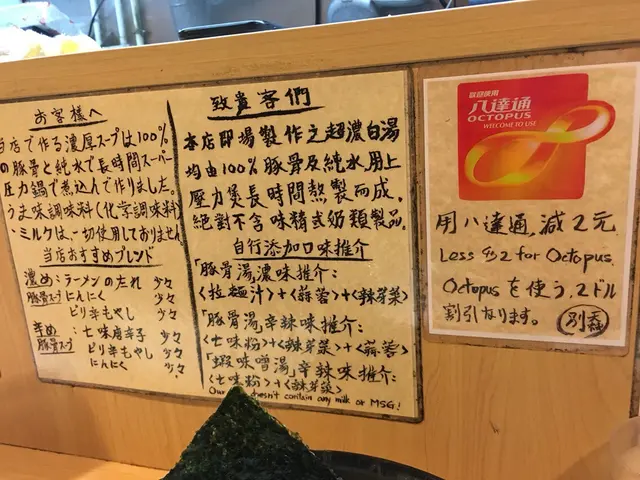 お客様へ
当店で作る濃厚スープは100%
の豚骨と純水で長時間スーパー
圧力鍋で煮込んで作りました。
うま味調味料(化学調味料)
・ミルクは、一切使用しておりません
当店おすすめブレンド
濃め:ラーメンのたれ 少々
豚骨スープ にんにく 少々
ピリ辛もやし 少々
辛め:七味唐辛子 少々
豚骨スープ ピリ辛もやし 少々
にんにく 少々
致貴客們
本店即場製作之超濃白湯
均由100%豚骨及純水,用上
壓力煲長時間熬製而成,
絕對不含味精或奶類製品。
自行添加口味推介
「豚骨湯,濃味推介:
<拉麵汁>+<蒜蓉>+<辣芽菜>
「豚骨湯」辛辣味推介:
<七味粉>+<辣芽菜>+<蒜蓉>
「蝦味噌湯」辛辣味推介:
<七味粉>+<辣芽菜>
doesn't contain any milk or MSG!
歡迎使用
八達通
OCTOPUS
WELCOME TO USE
用八達通,減2元
Less $2 for Octopus.
Octopusを使う,2ドル
割引なります。